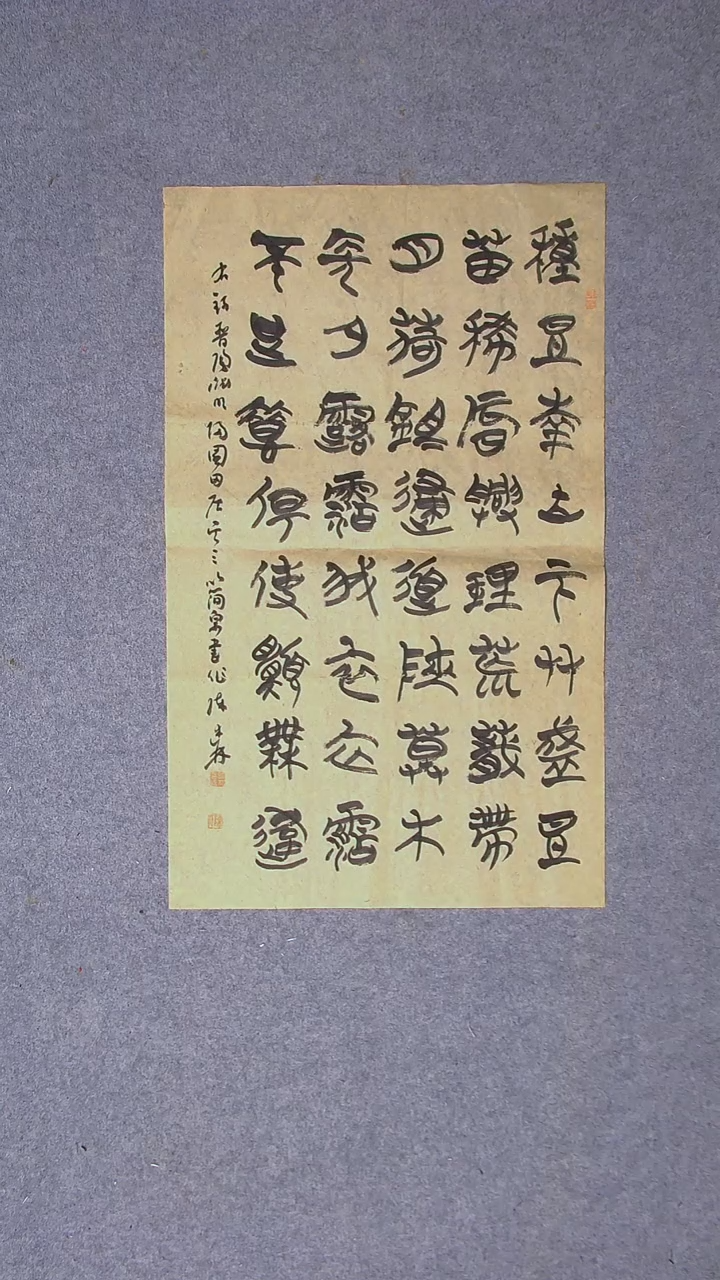 種豆南山下艸盛豆
苗稀晨興理荒薉帶
月荷鉏歸道陜草木
長夕露霑我衣衣霑
不足惜但使願無違
晉陶淵明歸園田居其三以简帛書